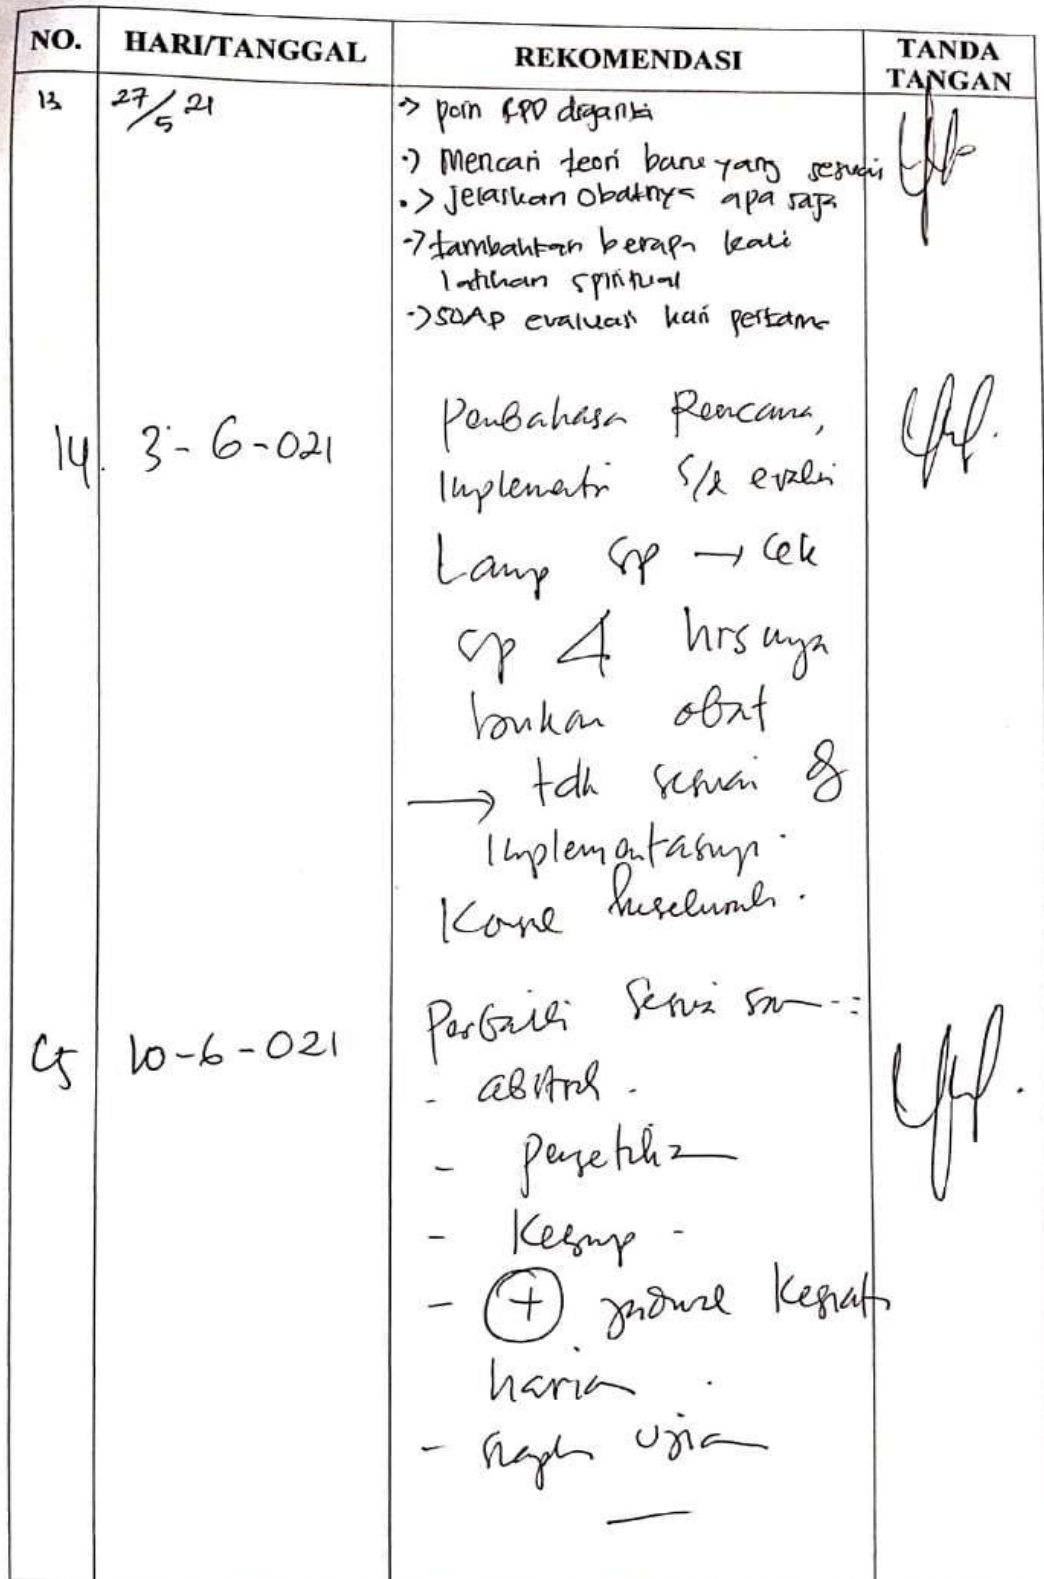 NO. HARI/TANGGAL REKOMENDASI TANDA TANGAN
13 27/5 21 -> poin RPD diganti
-> Mencari teori baru yang sesuai
-> Jelaskan obatnya apa saja
-> tambahkan berapa kali
latihan spiritual
-> SOAP evaluasi hari pertama
14. 3-6-021 Penbahasa Rencana,
Implementasi S/d evalisi
Lamp SP → Cek
SP 4 hrsnya
bukan obat
→ tdk sesuai
Implementasinya.
15 10-6-021 Perbaiki sesuai
- abstrak.
-
- Kesimp -
- + jadwal Kegiat
harian.
- siapkn ujian